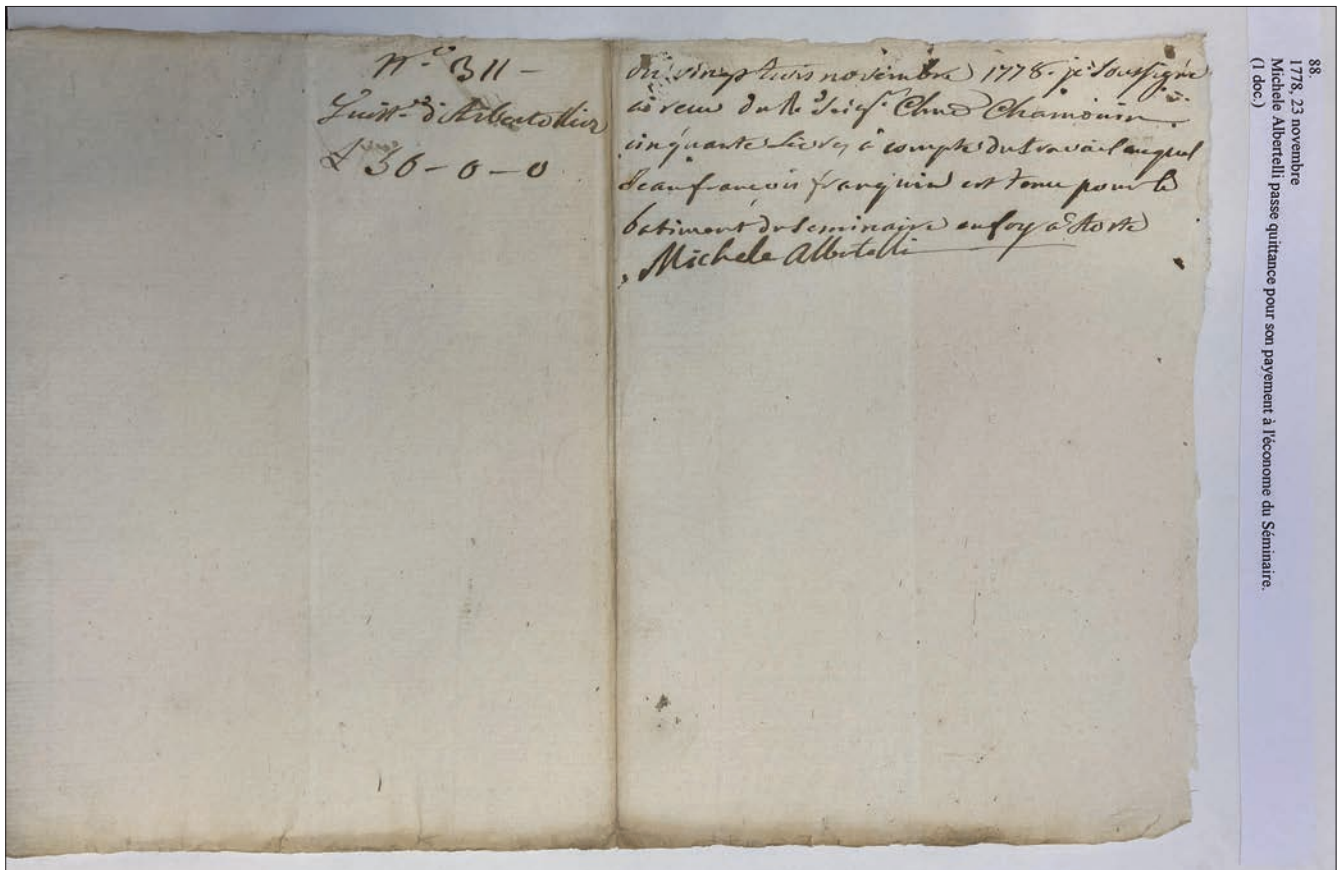 N.º 311 -
Quitt. d'Albertollier
L 50 - 0 - 0
du vinget trois novembre 1778. je soussigné
ai reçu du Rd Chamouin
cinquante livres à compte du travail auquel
Jean françois franquin est tenu pour le
batiment du seminaire en foy à Aoste
Michele Albertelli
88.
1778, 23 novembre
Michele Albertelli passe quittance pour son payement à l'économe du Séminaire.
(1 doc.)